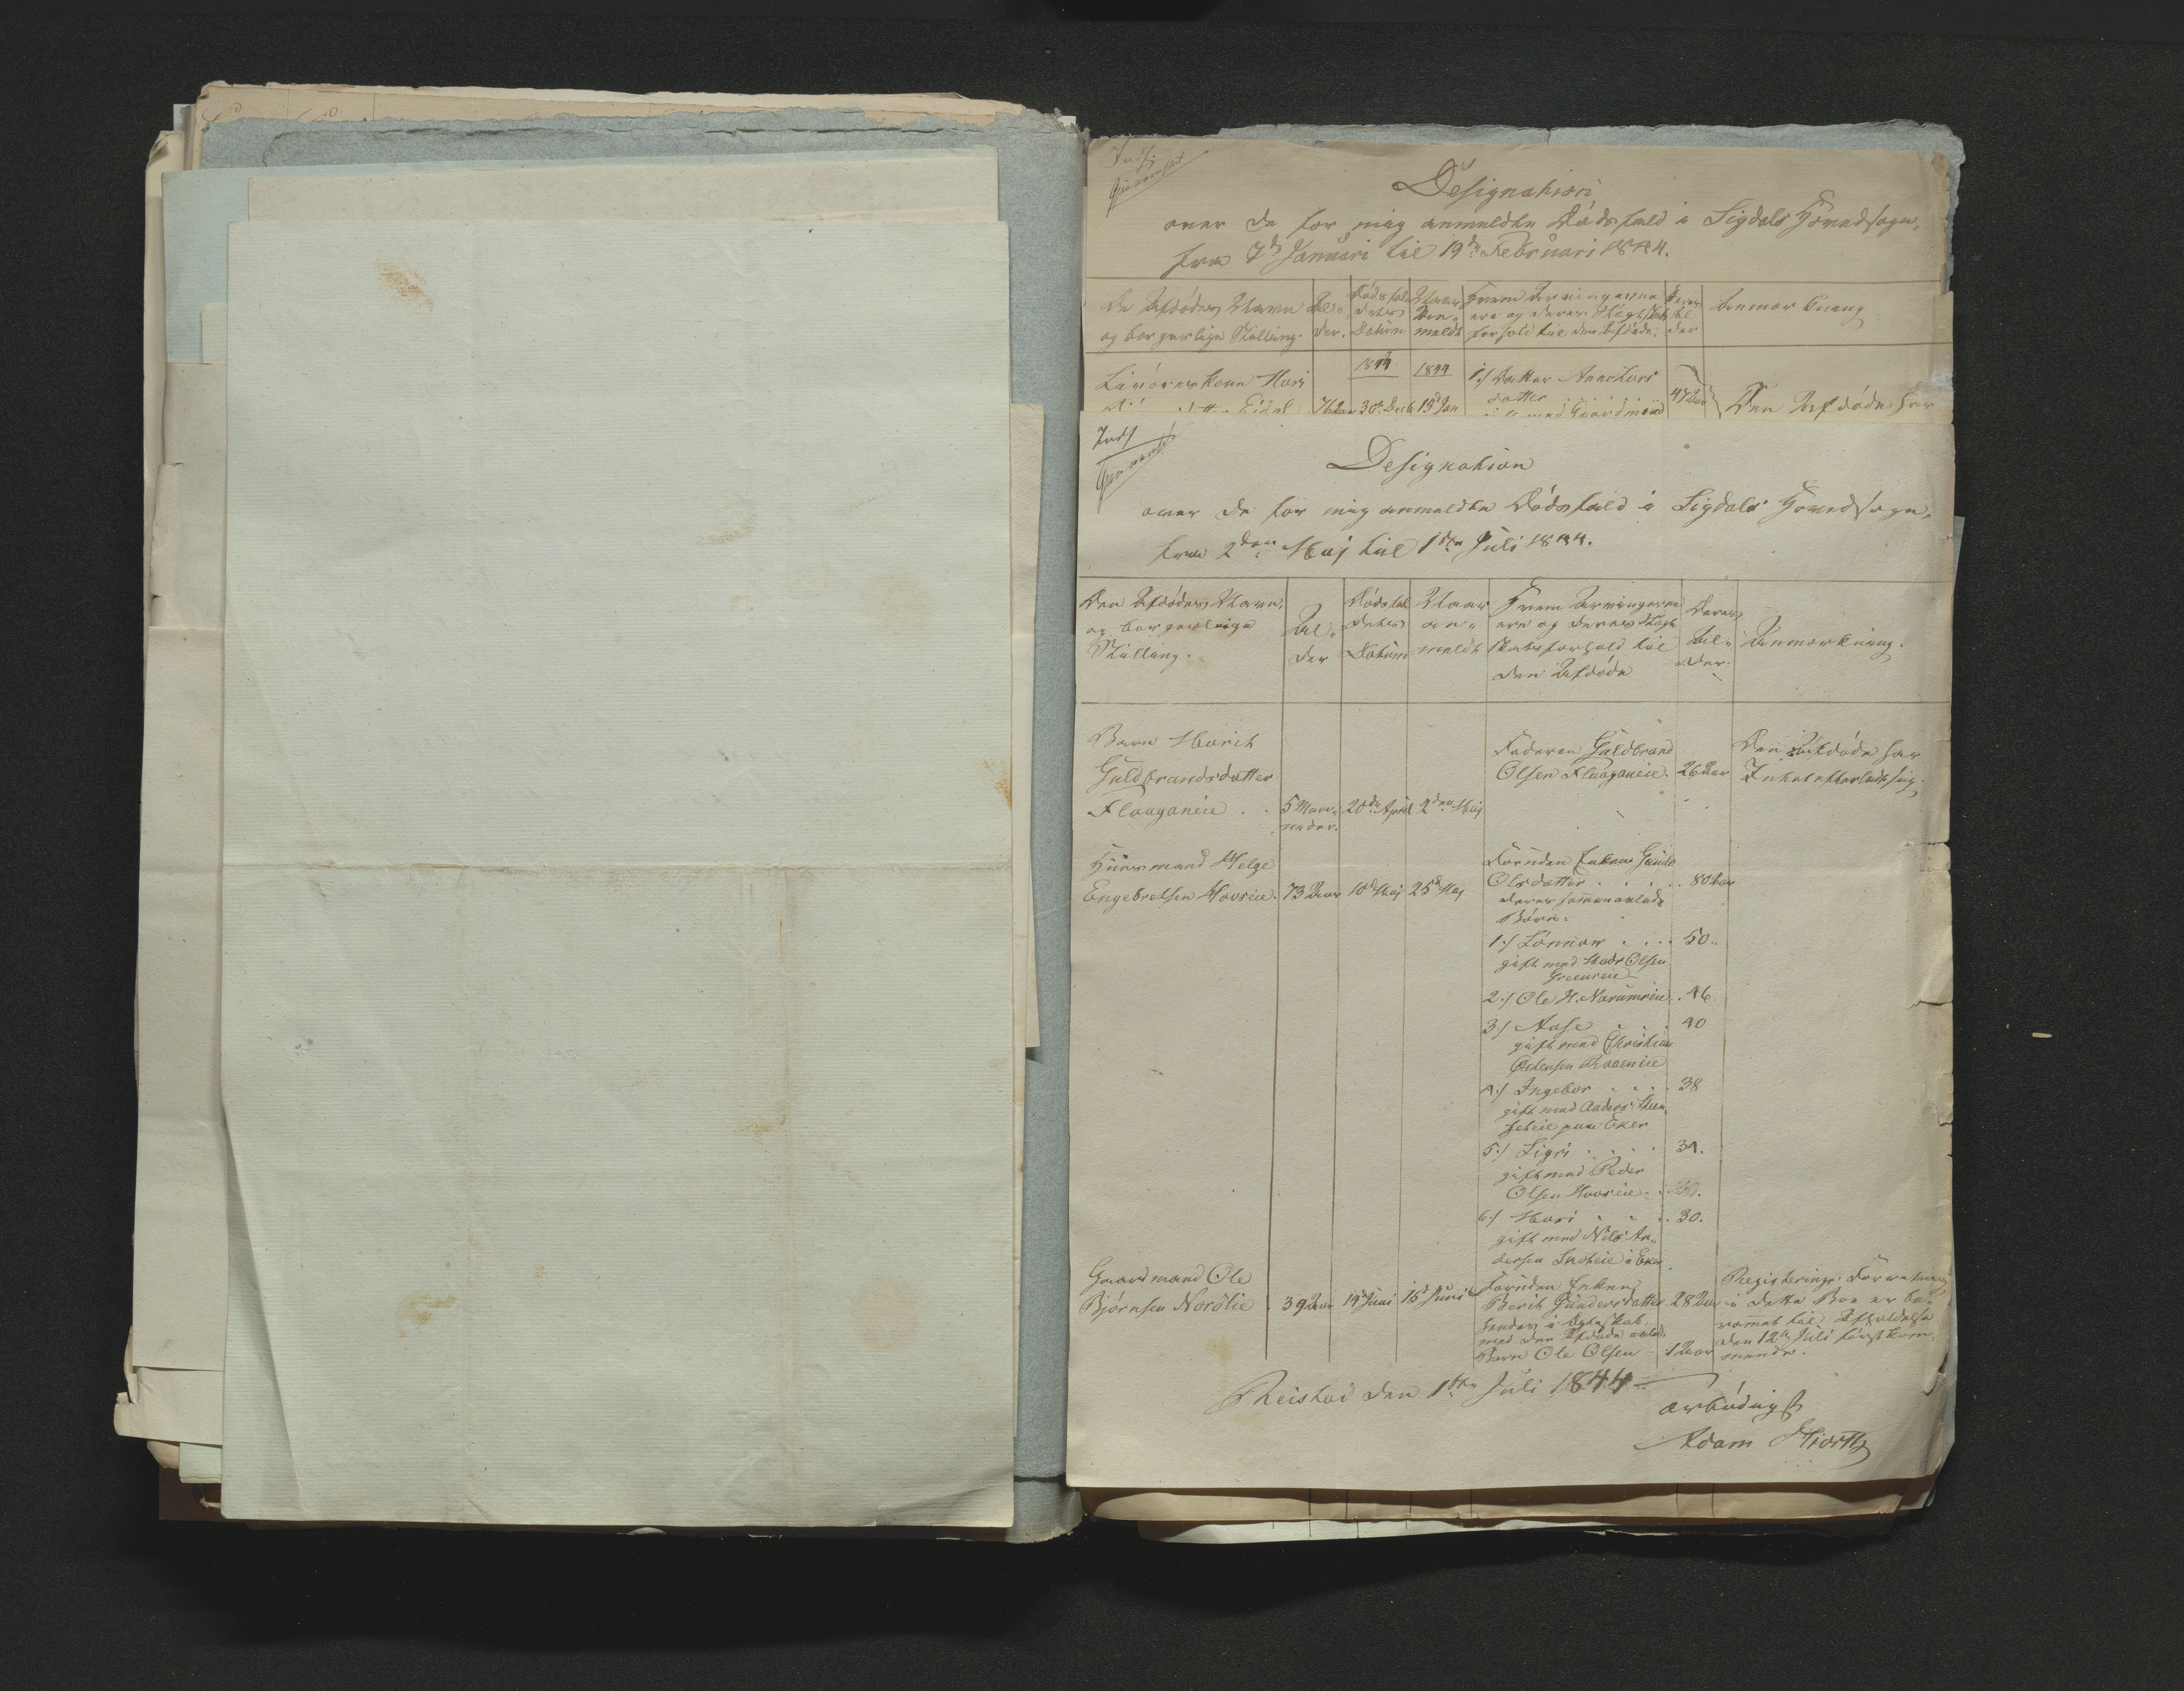 Designation
over de for mig anmeldte Dødsfald i Sigdals Hovedsogn,
fra 7de Januari til 19de Februari 1844.
De Afdødes Navn
og borgerlige Stilling.
Al-
der.
Dødsfal-
dets
Datum
Naar
an-
meldt
Hvem Arvingerne
ere og deres Slægtskabs
forhold til den Afdøde.
Deres
Al-
der
Anmærkning
1844
1/ Datter Anne Lars
datter
47 Aar
Den Afdøde har
Eidal 76 Aar 30te Decb 13de Jan
med Gaardmand
Designation
over de for mig anmeldte Dødsfald i Sigdals Hovedsogn,
fra 2den Maj til 1ste Juli 1844.
Den Afdødes Navn,
og borgerlige
Stilling.
Al-
der
Dødsfal-
dets
Datum
Naar
an-
meldt
Hvem Arvingerne
ere og deres Slægt-
skabsforhold til
den Afdøde
Deres
Al-
der.
Anmærkning.
Barn Marit
Guldbrandsdatter
Flaaganeie . . 5 Maa-
neder.
20de April 2den Maj
Faderen Guldbrand
Olsen Flaaganeie. 26 Aar
Den Afdøde har
Intet efterladt sig.
Huusmand Helge
Engebretsen Hovseie. 73 Aar 10de Maj 25de Maj
Forinden Enken Gunild
Olsdatter . . . . 80 Aar
deres sammenavlede
Børn:
1./ Lónnow . . . . 50.
gift med Mads Olsen
Greenseie
2./ Ole H. Narumeie . 46.
3/ Aase . . . 40
gift med Christian
Ordensen Raaeneie
4./ Ingebor . . . . 38
gift med Anders Steen
seteie paa Eker
5./ Sigri . . . . 34.
gift med Peder
Olsen Hovseie . .
6./ Mari . . . . 30.
gift med Nils An-
dersen Snoteie i Eker
Gaardmand Ole
Bjørnsen Nordlie . 39 Aar 14de Juni 16de Juni
Forinden Enken
Berit Gundersdatter 28 Aar
hendes i Ægteskab
med den Afdøde avlede
Barn Ole Olsen 1 Aar
Registerings Forretning
i dette Boe er be-
rammet til Afholdelse
den 12te Juli førstkom-
mende.
Reistad den 1ste Juli 1844
ærbødigst
Adam Hiorth